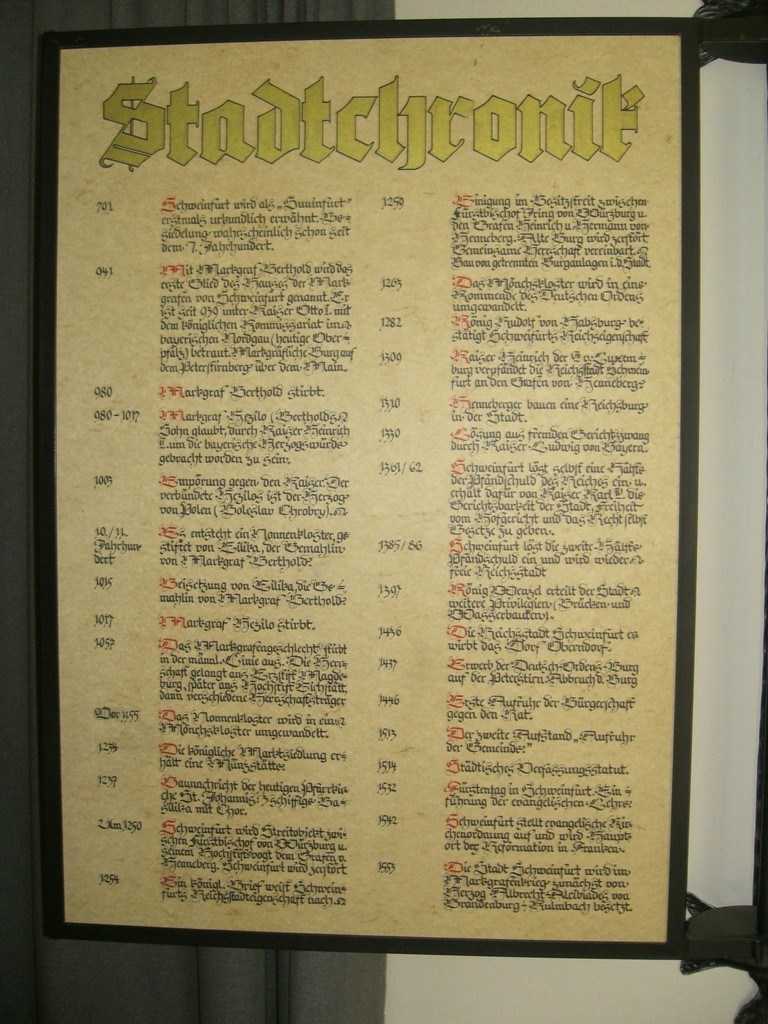 Stadtchronik
791 Schweinfurt wird als „Suuinfurt"
erstmals urkundlich erwähnt. Be=
siedelung wahrscheinlich schon seit
dem 7. Jahrhundert.
941 Mit Markgraf Berthold wird das
erste Glied des Hauses der Mark
grafen von Schweinfurt genannt. Er
ist seit 939 unter Kaiser Otto I. mit
dem königlichen Kommissariat im
bayerischen Nordgau (heutige Ober=
pfalz) betraut. Markgräfliche Burg auf
dem Peterstirnberg über dem Main.
980 Markgraf Berthold stirbt.
980-1017 Markgraf Hezilo (Bertholds
Sohn glaubt, durch Kaiser Heinrich
II. um die bayerische Herzogswürde
gebracht worden zu sein.
1003 Empörung gegen den Kaiser. Der
verbündete Hezilos ist der Herzog
von Polen (Boleslav Chrobry).
10./11.
Jahrhun=
dert Es entsteht ein Nonnenkloster, ge
stiftet von Eilika, der Gemahlin
von Markgraf Berthold.
1015 Beisetzung von Eilika, die Ge=
mahlin von Markgraf Berthold.
1017 Markgraf Hezilo stirbt.
1057 Das Markgrafengeschlecht stirbt
in der männl. Linie aus. Die Herr=
schaft gelangt ans Erzstift Magde=
burg, später ans Hochstift Eichstätt,
dann verschiedene Herrschaftsträger
Vor 1155 Das Nonnenkloster wird in ein
Mönchskloster umgewandelt.
1234 Die königliche Marktsiedlung er=
hält eine Münzstätte.
1237 Baunachricht der heutigen Pfarrkir=
che St. Johannis: 3 schiffige Ba=
silika mit Chor.
Um 1250 Schweinfurt wird Streitobjekt zwi=
schen Fürstbischof von Würzburg u.
seinem Hochstiftsvogt dem Grafen v.
Henneberg. Schweinfurt wird zerstört
1254 Ein königl. Brief weist Schwein=
furts Reichsstadteigenschaft nach.
1259 Einigung im Besitzstreit zwischen
Fürstbischof Iring von Würzburg u.
den Grafen Heinrich u. Hermann von
Henneberg. Alte Burg wird zerstört
Gemeinsame Herrschaft vereinbart.
Bau von getrennten Burganlagen i.d. Stadt.
1263 Das Mönchskloster wird in eine
Kommende des Deutschen Ordens
umgewandelt.
1282 König Rudolf von Habsburg be=
stätigt Schweinfurts Reichseigenschaft
1309 Kaiser Heinrich der v. Luxem=
burg verpfändet die Reichsstadt Schwein=
furt an den Grafen von Henneberg.
1310 Henneberger bauen eine Reichsburg
in der Stadt.
1330 Lösung aus fremden Gerichtszwang
durch Kaiser Ludwig von Bayern.
1361/62 Schweinfurt löst selbst eine Hälfte
der Pfandschuld des Reiches ein u.
erhält dafür von Kaiser Karl IV. die
Gerichtsbarkeit der Stadt, Freiheit
vom Hofgericht und das Recht selbst
Gesetze zu geben.
1385/86 Schweinfurt löst die zweite Hälfte
Pfandschuld ein und wird wieder
freie Reichsstadt
1397 König Wenzel erteilt der Stadt
weitere Privilegien (Brücken und
Wasserbauten).
1436 Die Reichsstadt Schweinfurt er
wirbt das Dorf Oberndorf.
1437 Erwerb der Deutsch-Ordens-Burg
auf der Peterstirn. Abbruch d. Burg
1446 Erste Aufruhr der Bürgerschaft
gegen den Rat.
1513 Der zweite Aufstand „Aufruhr
der Gemeinde."
1514 Städtisches Verfassungsstatut.
1532 Fürstentag in Schweinfurt. Ein=
führung der evangelischen Lehre.
1542 Schweinfurt stellt evangelische Kir=
chenordnung auf und wird Haupt=
ort der Reformation in Franken.
1553 Die Stadt Schweinfurt wird im
Markgrafenkrieg zunächst von
Herzog Albrecht Alcibiades von
Brandenburg-Kulmbach besetzt.